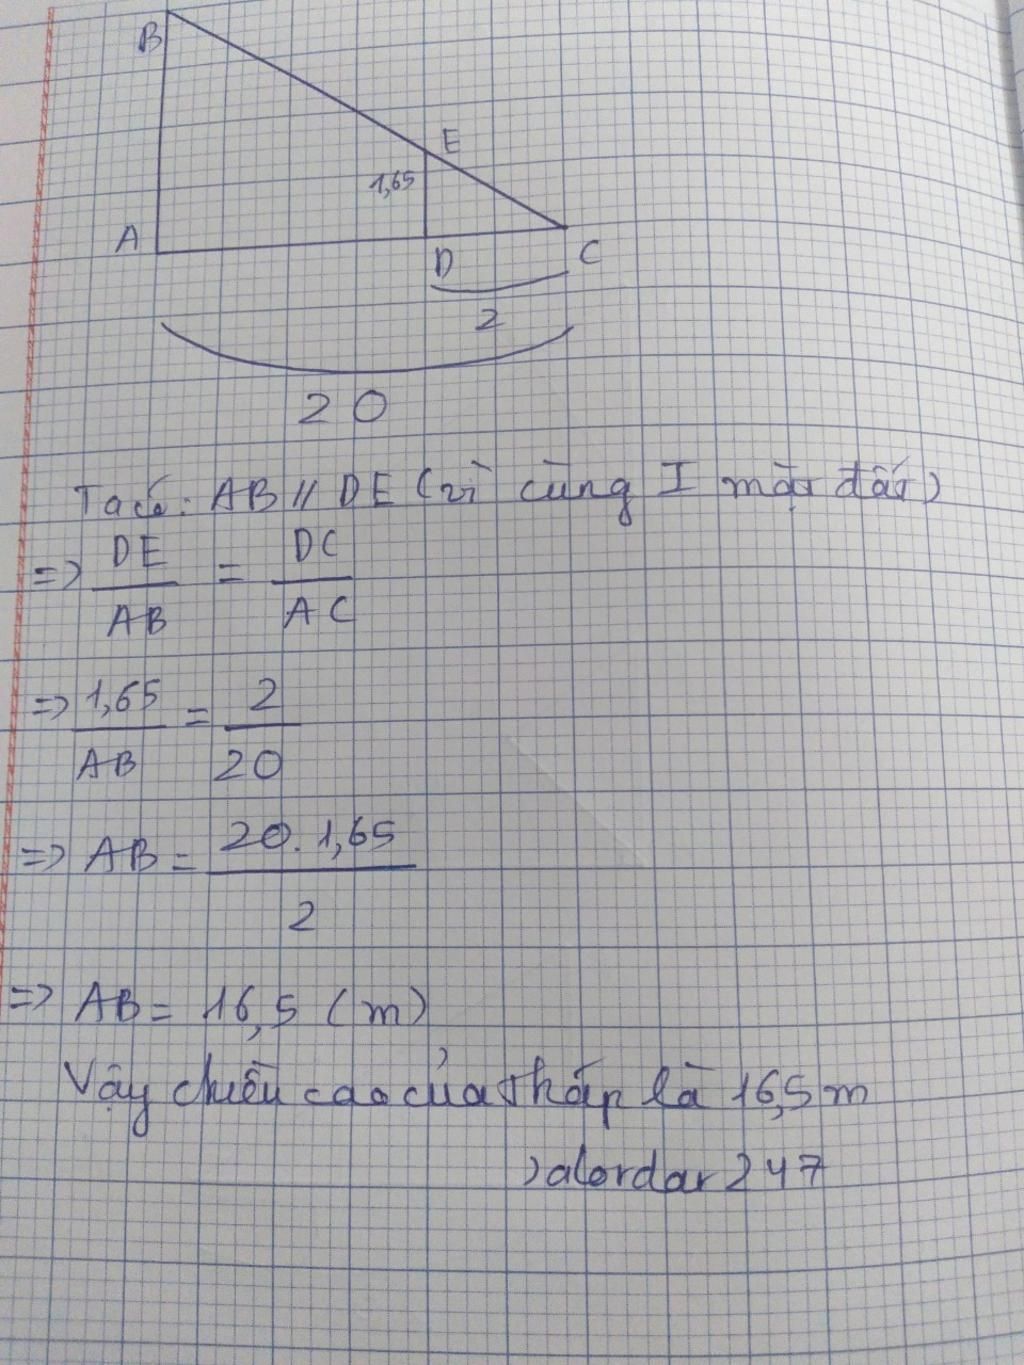 B
E
1,65
A
D
C
2
20
Ta có: AB // DE (vì cùng ⊥ mặt đất)
=> DE/AB = DC/AC
=> 1,65/AB = 2/20
=> AB = 20.1,65/2
=> AB = 16,5 (m)
Vậy chiều cao của tháp là 16,5 m
247